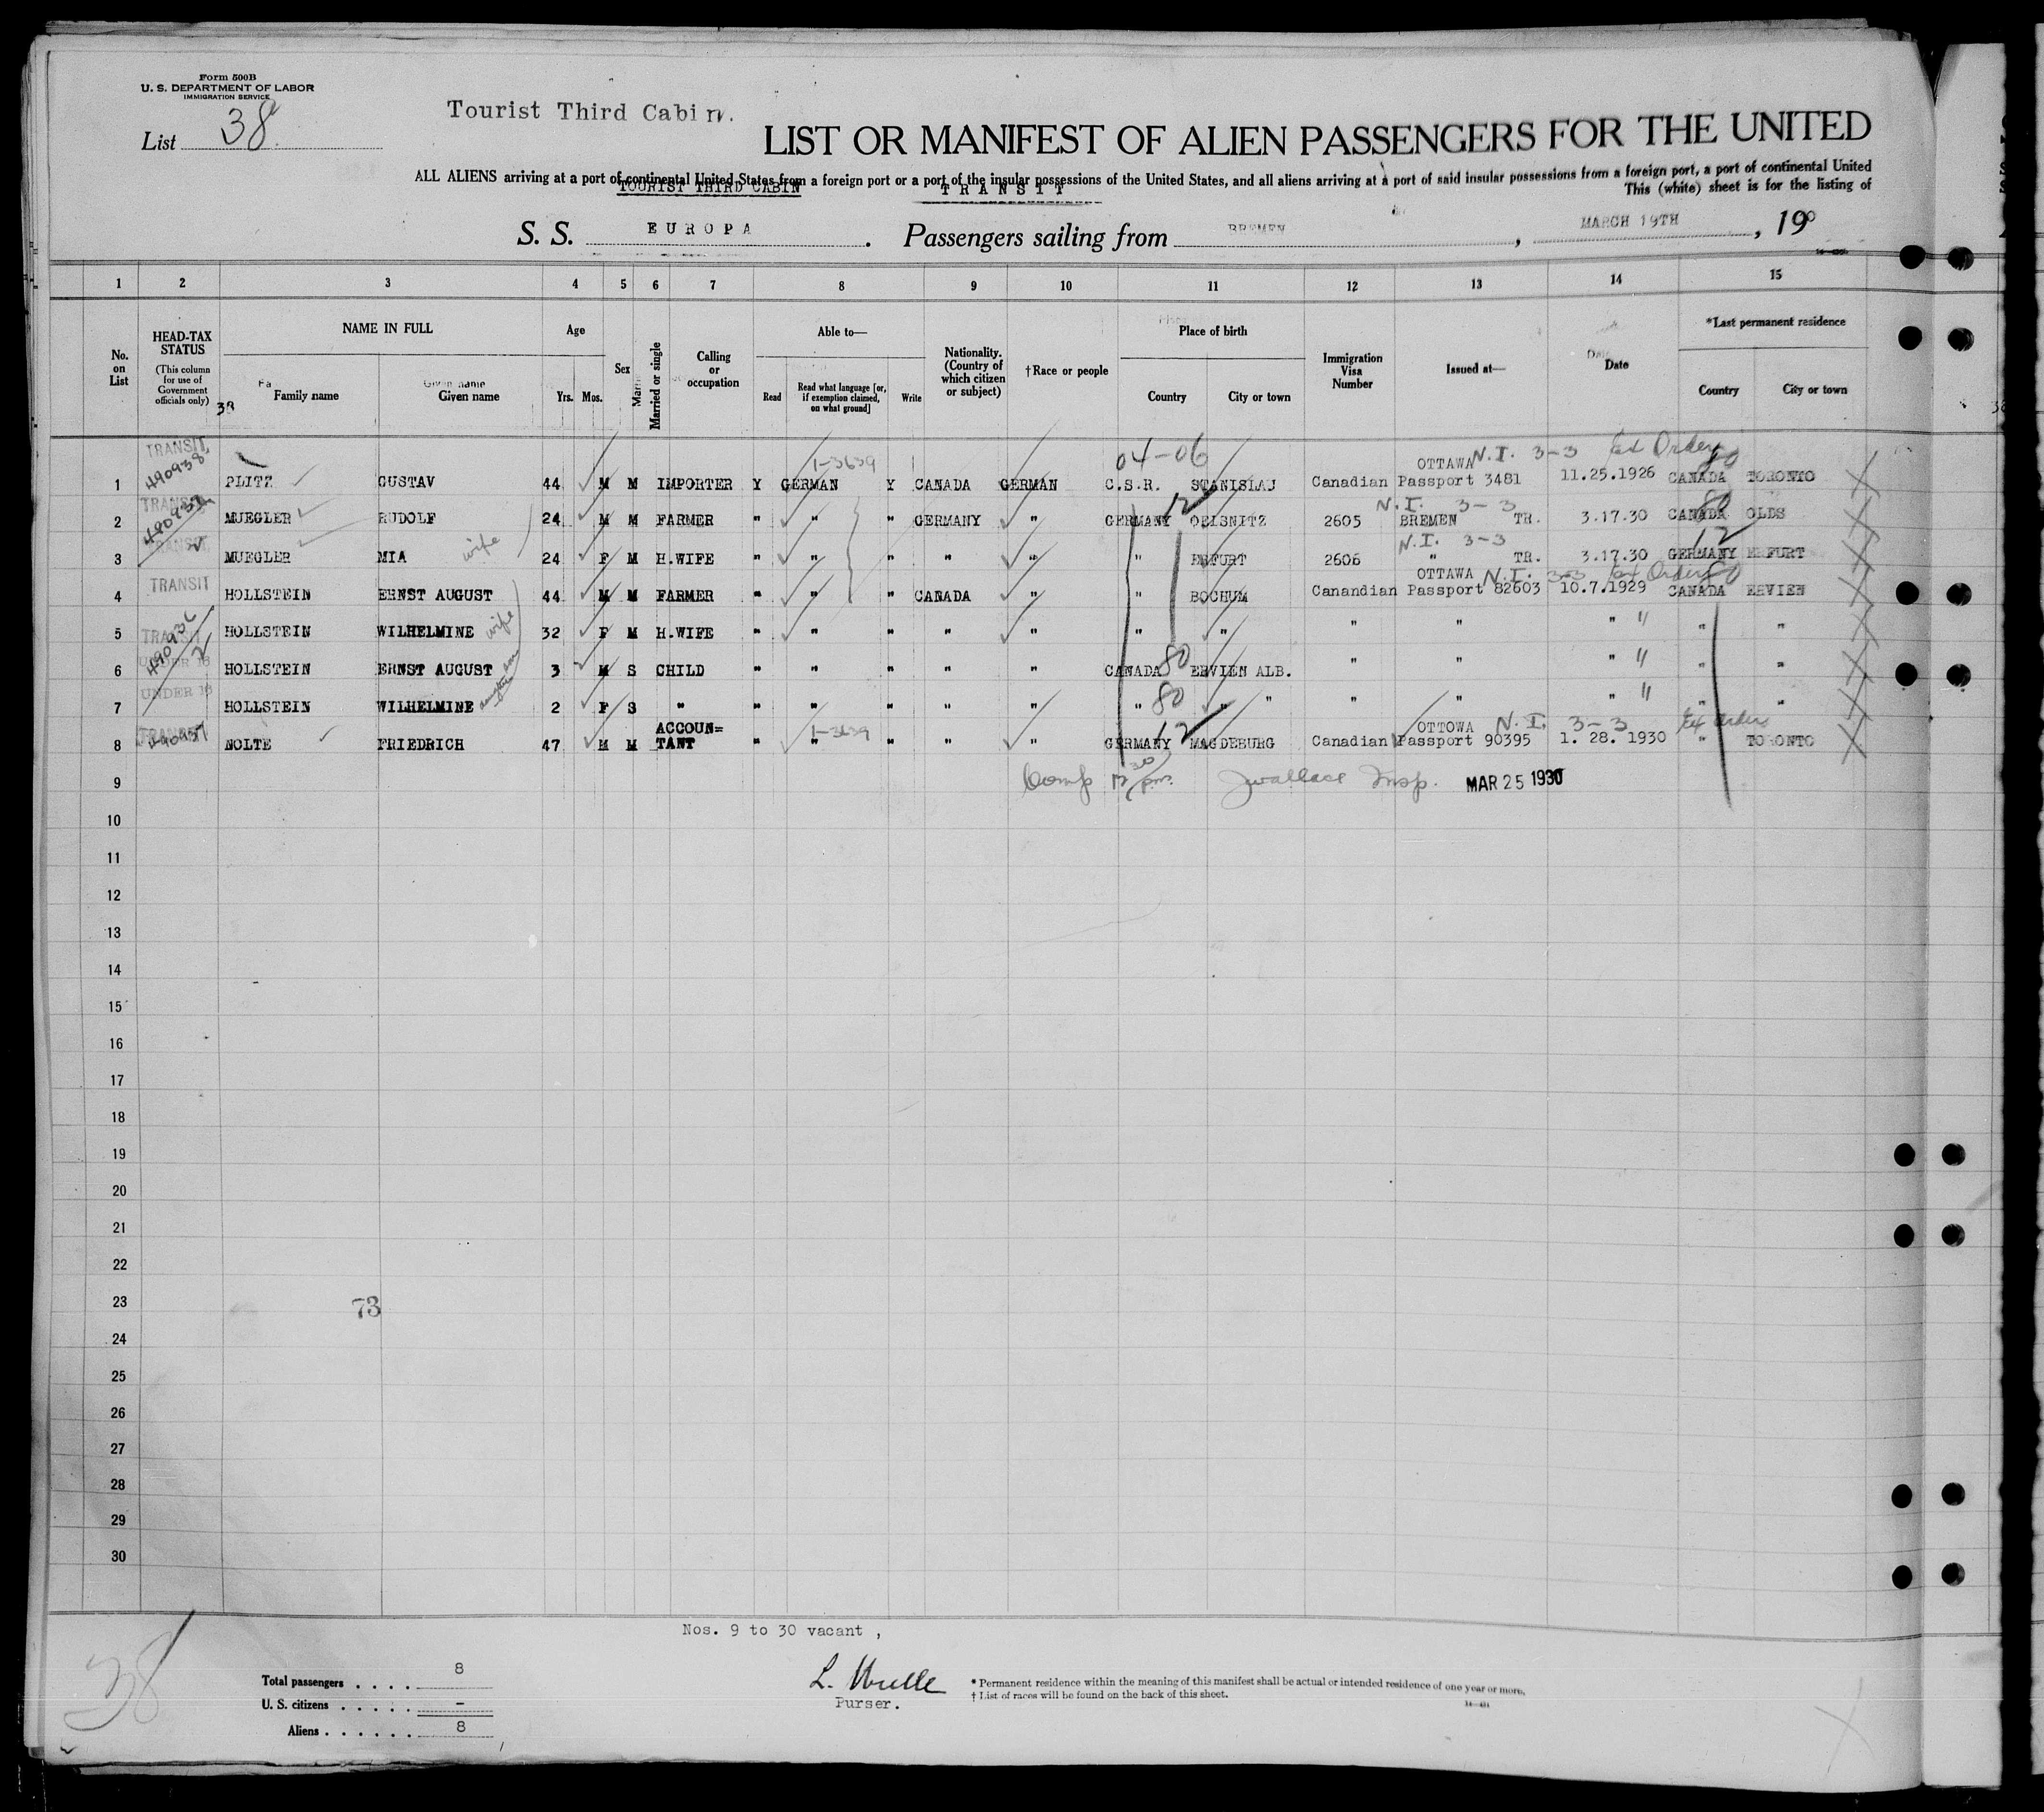 Form 500B
U. S. DEPARTMENT OF LABOR
IMMIGRATION SERVICE
List 38
Tourist Third Cabin.
LIST OR MANIFEST OF ALIEN PASSENGERS FOR THE UNITED
ALL ALIENS arriving at a port of continental United States from a foreign port or a port of the insular possessions of the United States, and all aliens arriving at a port of said insular possessions from a foreign port, a port of continental United
TOURIST THIRD CABIN TRANSIT This (white) sheet is for the listing of
S. S. EUROPA. Passengers sailing from BREMEN, MARCH 19TH, 19
1 2 3 4 5 6 7 8 9 10 11 12 13 14 15
No. on List
HEAD-TAX STATUS
(This column for use of Government officials only)
38
NAME IN FULL
Family name
Given name
Age
Yrs. Mos.
Sex
Married or single
Calling or occupation
Able to—
Read
Read what language [or, if exemption claimed, on what ground]
Write
Nationality. (Country of which citizen or subject)
†Race or people
Place of birth
Country
City or town
Immigration Visa Number
Issued at—
Date
*Last permanent residence
Country
City or town
TRANSIT 490938 1-3639 04-06 OTTAWA N.I. 3-3
1 PLITZ GUSTAV 44 M M IMPORTER Y GERMAN Y CANADA GERMAN C.S.R. STANISLAU Canadian Passport 3481 11.25.1926 CANADA TORONTO
TRANSIT 12 N.I. 3-3 80
2 MUEGLER RUDOLF 24 M M FARMER " " " GERMANY " GERMANY OELSNITZ 2605 BREMEN TR. 3.17.30 CANADA OLDS
TRANSIT N.I. 3-3 12
3 MUEGLER MIA wife 24 F M H.WIFE " " " " " " ERFURT 2606 " TR. 3.17.30 GERMANY ERFURT
TRANSIT OTTAWA N.I. 3-3 80
4 HOLLSTEIN ERNST AUGUST 44 M M FARMER " " " CANADA " " BOCHUM Canandian Passport 82603 10.7.1929 CANADA ERVIEN
TRANSIT
5 HOLLSTEIN WILHELMINE wife 32 F M H.WIFE " " " " " " " " " " " "
UNDER 16 80
6 HOLLSTEIN ERNST AUGUST son 3 M S CHILD " " " " " CANADA ERVIEN ALB. " " " " "
UNDER 16 80
7 HOLLSTEIN WILHELMINE daughter 2 F S " " " " " " " " " " " " "
TRANSIT 1-3639 12 OTTOWA N.I. 3-3 Ex Orders
8 NOLTE FRIEDRICH 47 M M ACCOUN=TANT " " " " " GERMANY MAGDEBURG Canadian Passport 90395 1. 28. 1930 " TORONTO
9 Comp Jwallace Insp. MAR 25 1930
10
11
12
13
14
15
16
17
18
19
20
21
22
23 73
24
25
26
27
28
29
30
Nos. 9 to 30 vacant ,
38
Total passengers . . . . 8
U. S. citizens . . . . . –
Aliens . . . . . . 8
Purser.
* Permanent residence within the meaning of this manifest shall be actual or intended residence of one year or more.
† List of races will be found on the back of this sheet.